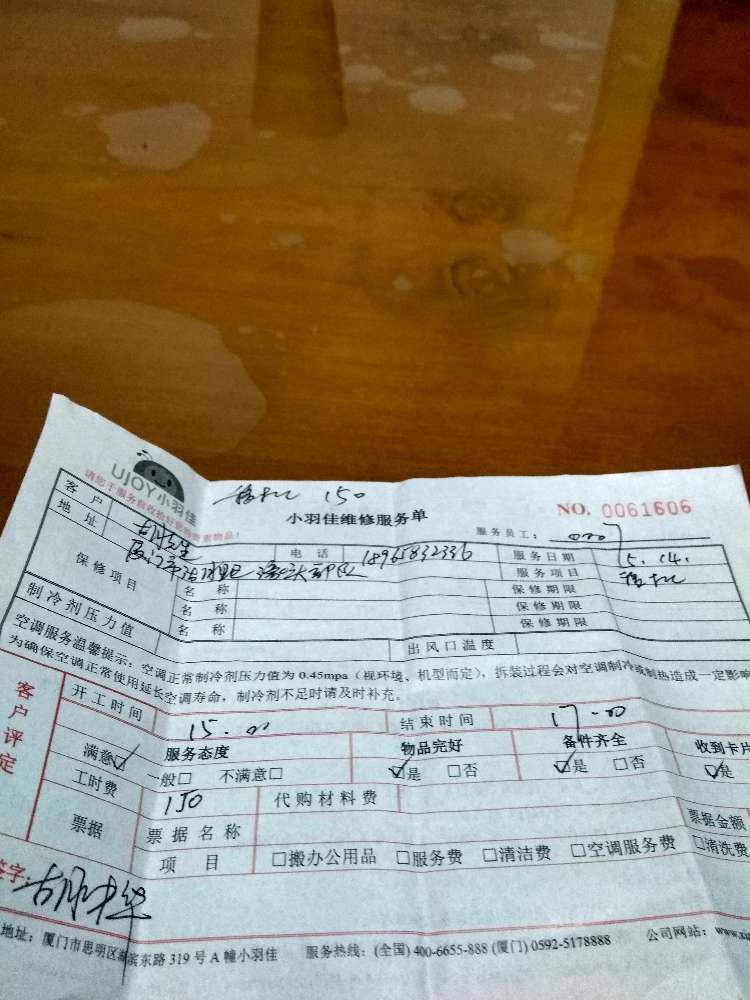 UJOY小羽佳
移机 150
NO. 0061606
小羽佳维修服务单
服务员工： 0007
客 户 胡先生 电 话 18965832336 服务日期 5.14.
地 址 厦门市 服务项目 移机
保修项目 名 称 保修期限
名 称 保修期限
名 称 保修期限
制冷剂压力值 出风口温度
空调服务温馨提示：空调正常制冷剂压力值为 0.45mpa（视环境、机型而定），拆装过程会对空调制冷或制热造成一定影响
为确保空调正常使用延长空调寿命，制冷剂不足时请及时补充。
客户评定
开工时间 15.00 结束时间 17-00
服务态度 物品完好 备件齐全 收到卡片
满意☑ 一般□ 不满意□ ☑是 □否 ☑是 □否 ☑是
工时费 150 代购材料费
票据 票据名称 票据金额
项 目 □搬办公用品 □服务费 □清洁费 □空调服务费 □清洗费
签字：胡中华
地址：厦门市思明区湖滨东路 319 号 A 幢小羽佳 服务热线：(全国) 400-6655-888 (厦门) 0592-5178888 公司网站：www.xi